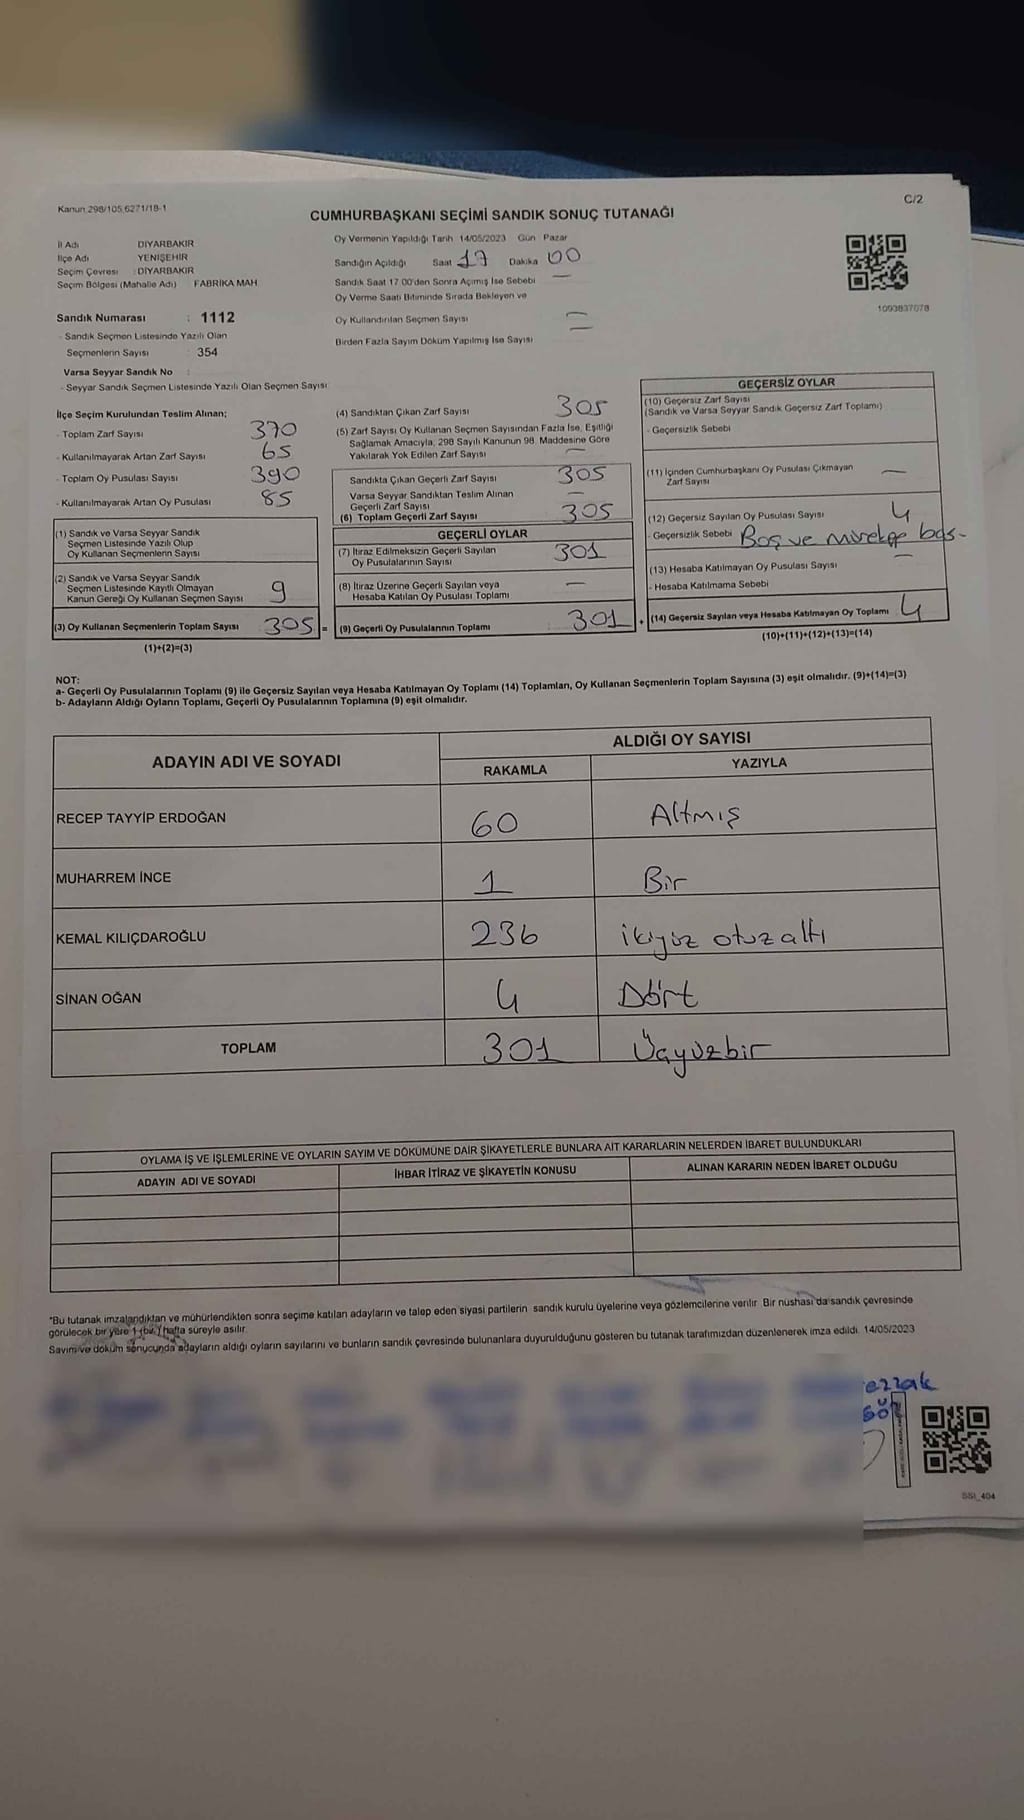 Kanun 298/105,6271/18-1
C/2
CUMHURBAŞKANI SEÇİMİ SANDIK SONUÇ TUTANAĞI
İl Adı DİYARBAKIR
İlçe Adı YENİŞEHİR
Seçim Çevresi : DİYARBAKIR
Seçim Bölgesi (Mahalle Adı) FABRİKA MAH
Sandık Numarası : 1112
- Sandık Seçmen Listesinde Yazılı Olan
Seçmenlerin Sayısı 354
Varsa Seyyar Sandık No :
- Seyyar Sandık Seçmen Listesinde Yazılı Olan Seçmen Sayısı
Oy Vermenin Yapıldığı Tarih 14/05/2023 Gün Pazar
Sandığın Açıldığı Saat 17 Dakika 00
Sandık Saat 17.00'den Sonra Açımış İse Sebebi —
Oy Verme Saati Bitiminde Sırada Bekleyen ve
Oy Kullandırılan Seçmen Sayısı —
Birden Fazla Sayım Döküm Yapılmış İse Sayısı —
1093837078
İlçe Seçim Kurulundan Teslim Alınan;
- Toplam Zarf Sayısı 370
- Kullanılmayarak Artan Zarf Sayısı 65
- Toplam Oy Pusulası Sayısı 390
- Kullanılmayarak Artan Oy Pusulası 85
(1) Sandık ve Varsa Seyyar Sandık
Seçmen Listesinde Yazılı Olup
Oy Kullanan Seçmenlerin Sayısı
(2) Sandık ve Varsa Seyyar Sandık
Seçmen Listesinde Kayıtlı Olmayan
Kanun Gereği Oy Kullanan Seçmen Sayısı 9
(3) Oy Kullanan Seçmenlerin Toplam Sayısı 305 =
(1)+(2)=(3)
(4) Sandıktan Çıkan Zarf Sayısı 305
(5) Zarf Sayısı Oy Kullanan Seçmen Sayısından Fazla İse, Eşitliği
Sağlamak Amacıyla, 298 Sayılı Kanunun 98. Maddesine Göre
Yakılarak Yok Edilen Zarf Sayısı —
Sandıkta Çıkan Geçerli Zarf Sayısı 305
Varsa Seyyar Sandıktan Teslim Alınan
Geçerli Zarf Sayısı —
(6) Toplam Geçerli Zarf Sayısı 305
GEÇERLİ OYLAR
(7) İtiraz Edilmeksizin Geçerli Sayılan
Oy Pusulalarının Sayısı 301
(8) İtiraz Üzerine Geçerli Sayılan veya
Hesaba Katılan Oy Pusulası Toplamı —
(9) Geçerli Oy Pusulalarının Toplamı 301 +
GEÇERSİZ OYLAR
(10) Geçersiz Zarf Sayısı
(Sandık ve Varsa Seyyar Sandık Geçersiz Zarf Toplamı)
- Geçersizlik Sebebi
(11) İçinden Cumhurbaşkanı Oy Pusulası Çıkmayan
Zarf Sayısı —
(12) Geçersiz Sayılan Oy Pusulası Sayısı 4
- Geçersizlik Sebebi Boş ve
(13) Hesaba Katılmayan Oy Pusulası Sayısı —
- Hesaba Katılmama Sebebi
(14) Geçersiz Sayılan veya Hesaba Katılmayan Oy Toplamı 4
(10)+(11)+(12)+(13)=(14)
NOT:
a- Geçerli Oy Pusulalarının Toplamı (9) ile Geçersiz Sayılan veya Hesaba Katılmayan Oy Toplamı (14) Toplamları, Oy Kullanan Seçmenlerin Toplam Sayısına (3) eşit olmalıdır. (9)+(14)=(3)
b- Adayların Aldığı Oyların Toplamı, Geçerli Oy Pusulalarının Toplamına (9) eşit olmalıdır.
ADAYIN ADI VE SOYADI ALDIĞI OY SAYISI
RAKAMLA YAZIYLA
RECEP TAYYİP ERDOĞAN 60 Altmış
MUHARREM İNCE 1 Bir
KEMAL KILIÇDAROĞLU 236 ikiyüz otuz altı
SİNAN OĞAN 4 Dört
TOPLAM 301 Üçyüzbir
OYLAMA İŞ VE İŞLEMLERİNE VE OYLARIN SAYIM VE DÖKÜMÜNE DAİR ŞİKAYETLERLE BUNLARA AİT KARARLARIN NELERDEN İBARET BULUNDUKLARI
ADAYIN ADI VE SOYADI İHBAR İTİRAZ VE ŞİKAYETİN KONUSU ALINAN KARARIN NEDEN İBARET OLDUĞU
*Bu tutanak imzalandıktan ve mühürlendikten sonra seçime katılan adayların ve talep eden siyasi partilerin sandık kurulu üyelerine veya gözlemcilerine verilir Bir nüshası da sandık çevresinde
görülecek bir yere 1 (bir) hafta süreyle asılır.
Sayım ve döküm sonucunda adayların aldığı oyların sayılarını ve bunların sandık çevresinde bulunanlara duyurulduğunu gösteren bu tutanak tarafımızdan düzenlenerek imza edildi. 14/05/2023
SSI_404